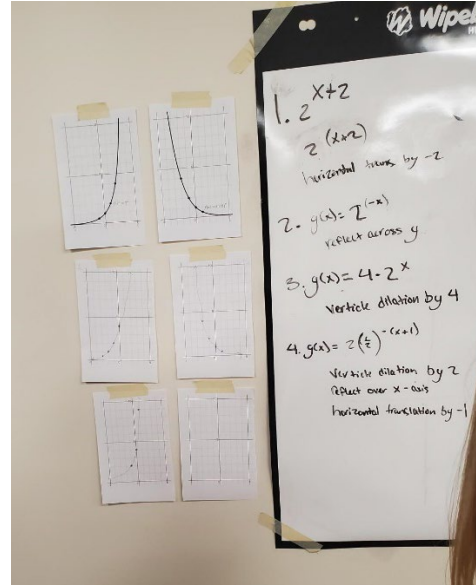 Wipe
1. 2^x+2
2^(x+2)
horizontal trans by -2
2. g(x) = 2^(-x)
reflect across y
3. g(x) = 4·2^x
verticle dilation by 4
4. g(x) = 2( )^-(x+1)
verticle dilation by 2
reflect over x-axis
horizontal translation by -1